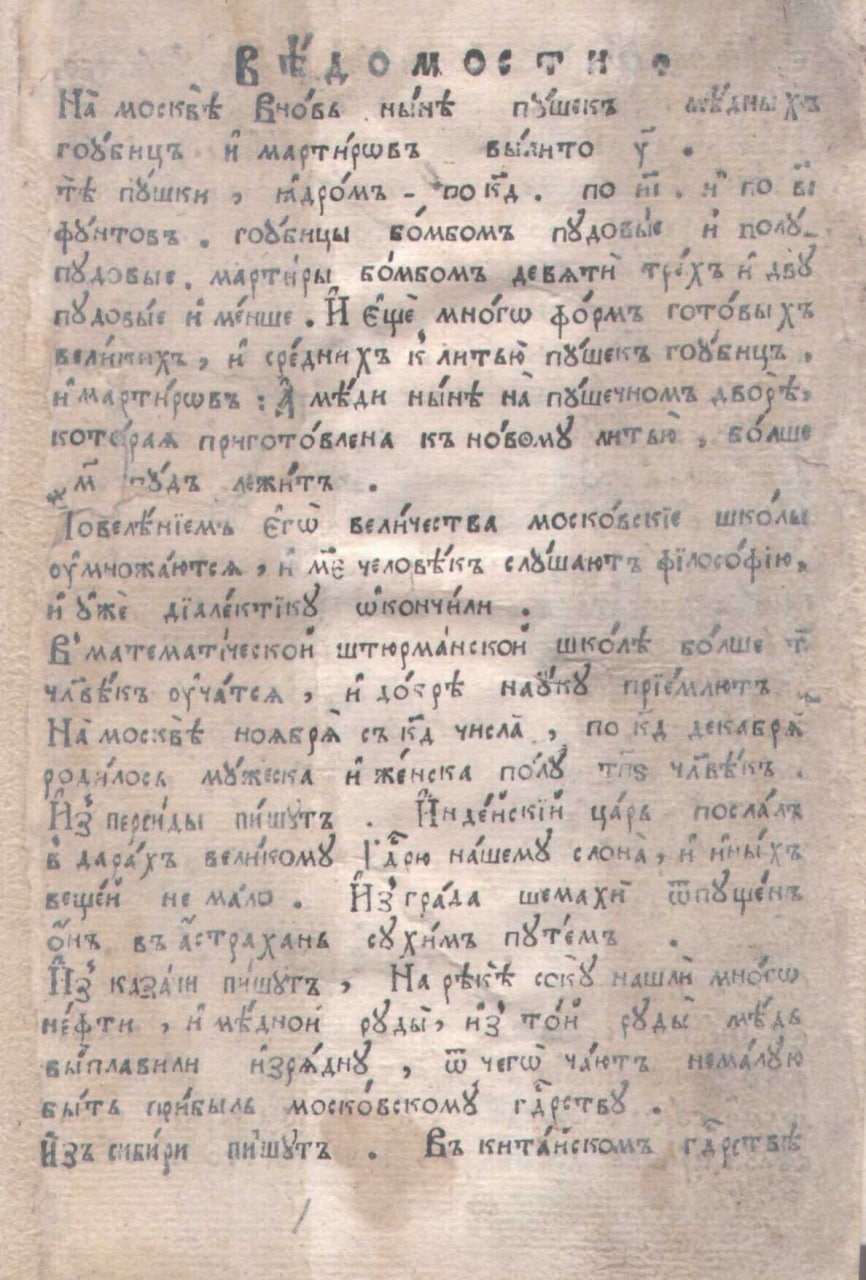 вѣ́домости .
На̀ москвѣ̀ вно́вь ны́нѣ пу́шекъ мѣ́дныхъ
гоꙋ́бицъ и҆ марти́рѡвъ вы́лито у҃ .
тѣ̀ пу́шки , ꙗ҆дро́мъ - по к҃д . по и҃і . и҆ по в҃і
фу́нтовъ . гоꙋ́бицы бо́мбомъ пудовы́е и҆ полу-
пудовые . марти́ры бо́мбомъ девятѝ тре́хъ и҆ дву
пудовы́е и҆ ме́нше . И҆ є҆щѐ мно́гѡ фо́рмъ гото́выхъ
вели́кихъ , и҆ сре́днихъ к̾ литью̀ пу́шекъ гоꙋ́бицъ ,
и҆ марти́рѡвъ : А҆ мѣ́ди ны́нѣ на̀ пу́шечномъ дворѣ̀,
кото́рая пригото́влена къ но́вому литью̀ , бо́лше
м҃ пу́дъ лежи́тъ .
Повелѣ́нїемъ є҆гѡ̀ вели́чества моско́вскїе шко́лы
оу҆множа́ются , и҆ м҃е человѣ́къ слу́шаютъ фїлосо́фїю,
и҆ у҆жѐ дїале́ктїку ѡ҆кончи́ли .
В̾ математі́ческой штюрма́нской шко́лѣ бо́лше т҃
чл҃вѣ́къ оу҆ча́тся , и҆ до́брѣ нау́ку прїе́млютъ .
На̀ москвѣ̀ ноября̀ съ к҃д числа̀ , по к҃д декабря̀
роди́лось му́жеска и҆ же́нска по́лу т҃пѕ чл҃вѣ́къ .
И҆з̾ перси́ды пи́шутъ . И҆нде́йскїй ца́рь посла́лъ
в̾ дара́хъ вели́кому Гд҃рю на́шему слона̀ , и҆ и҆ны́хъ
веще́й не ма́ло . И҆з̾ гра́да шемахѝ ѿпу́щенъ
о҆́нъ въ а҆́страхань сухи́мъ путе́мъ .
И҆з̾ каза́ни пи́шутъ , На рѣкѣ̀ соку̀ нашлѝ мно́гѡ
не́фти , и҆ мѣ́дной руды̀, и҆з̾ то́й руды̀ мѣ́дь
вы́плавили и҆зря́дну , ѿ чегѡ̀ ча́ютъ нема́лую
бы́ть при́быль моско́вскому гд҃рству .
И҆зъ сиби́ри пи́шутъ . Въ кита́йскомъ гд҃рствѣ